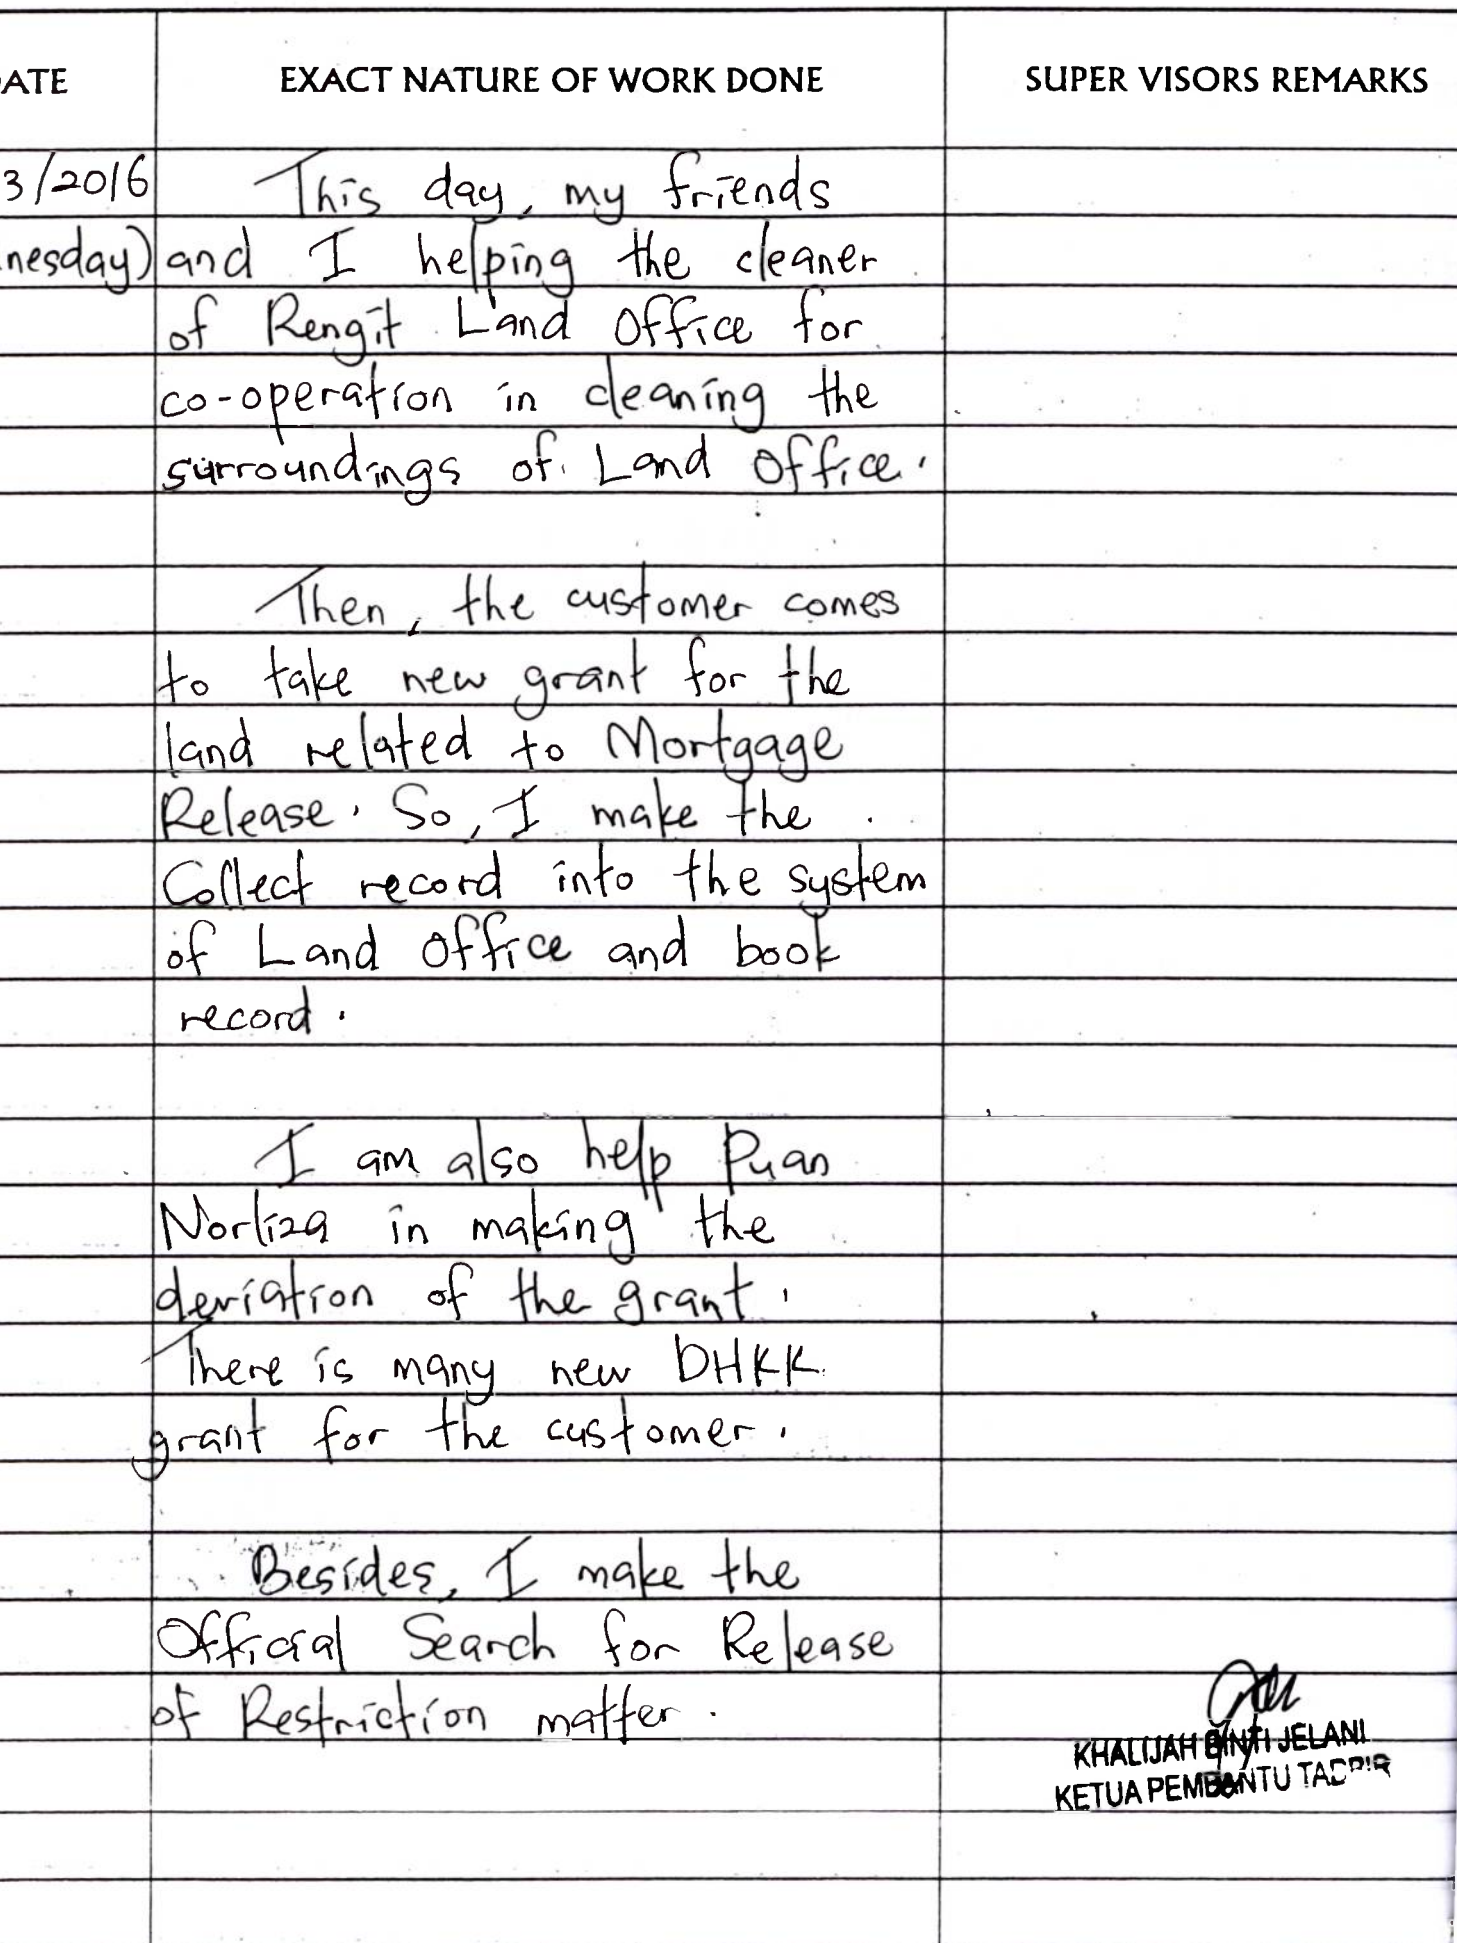 ATE EXACT NATURE OF WORK DONE SUPER VISORS REMARKS
3/2016 This day, my friends
nesday) and I helping the cleaner
of Rengit Land Office for
co-operation in cleaning the
surroundings of Land Office.
Then, the customer comes
to take new grant for the
land related to Mortgage
Release. So, I make the
Collect record into the system
of Land Office and book
record.
I am also help Puan
Norliza in making the
deviation of the grant.
There is many new DHKK
grant for the customer.
Besides, I make the
Official Search for Release
of Restriction matter.
KHALIJAH BINTI JELANI
KETUA PEMBANTU TADBIR